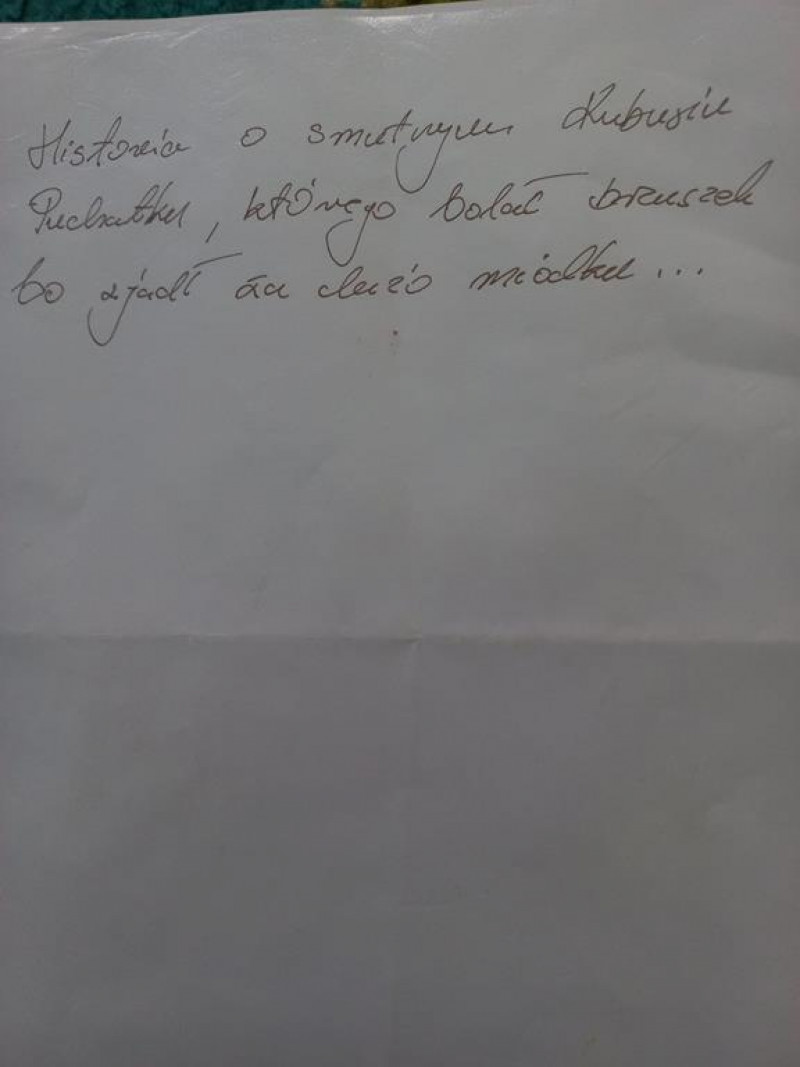 Historia o smutnym Kubusiu
Puchatku, którego bolał brzuszek
bo zjadł za dużo miódku...